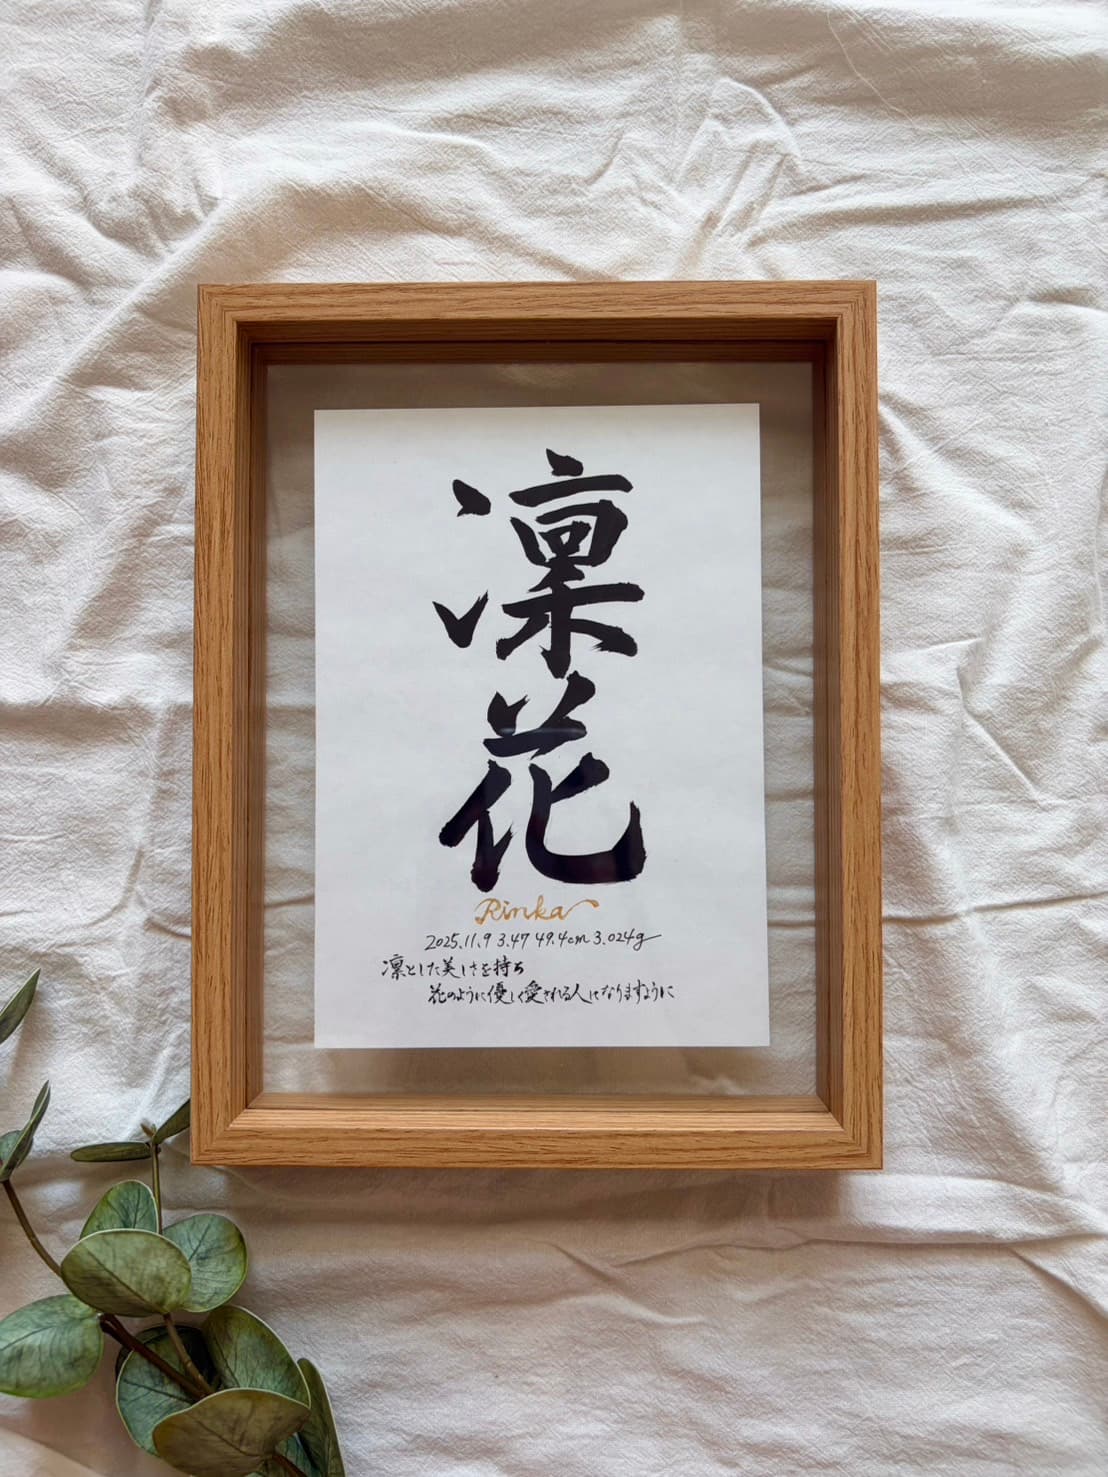 凛花
Rinka
2025.11.9 3.47 49.4cm 3.024g
凛とした美しさを持ち
花のように優しく愛される人になりますように